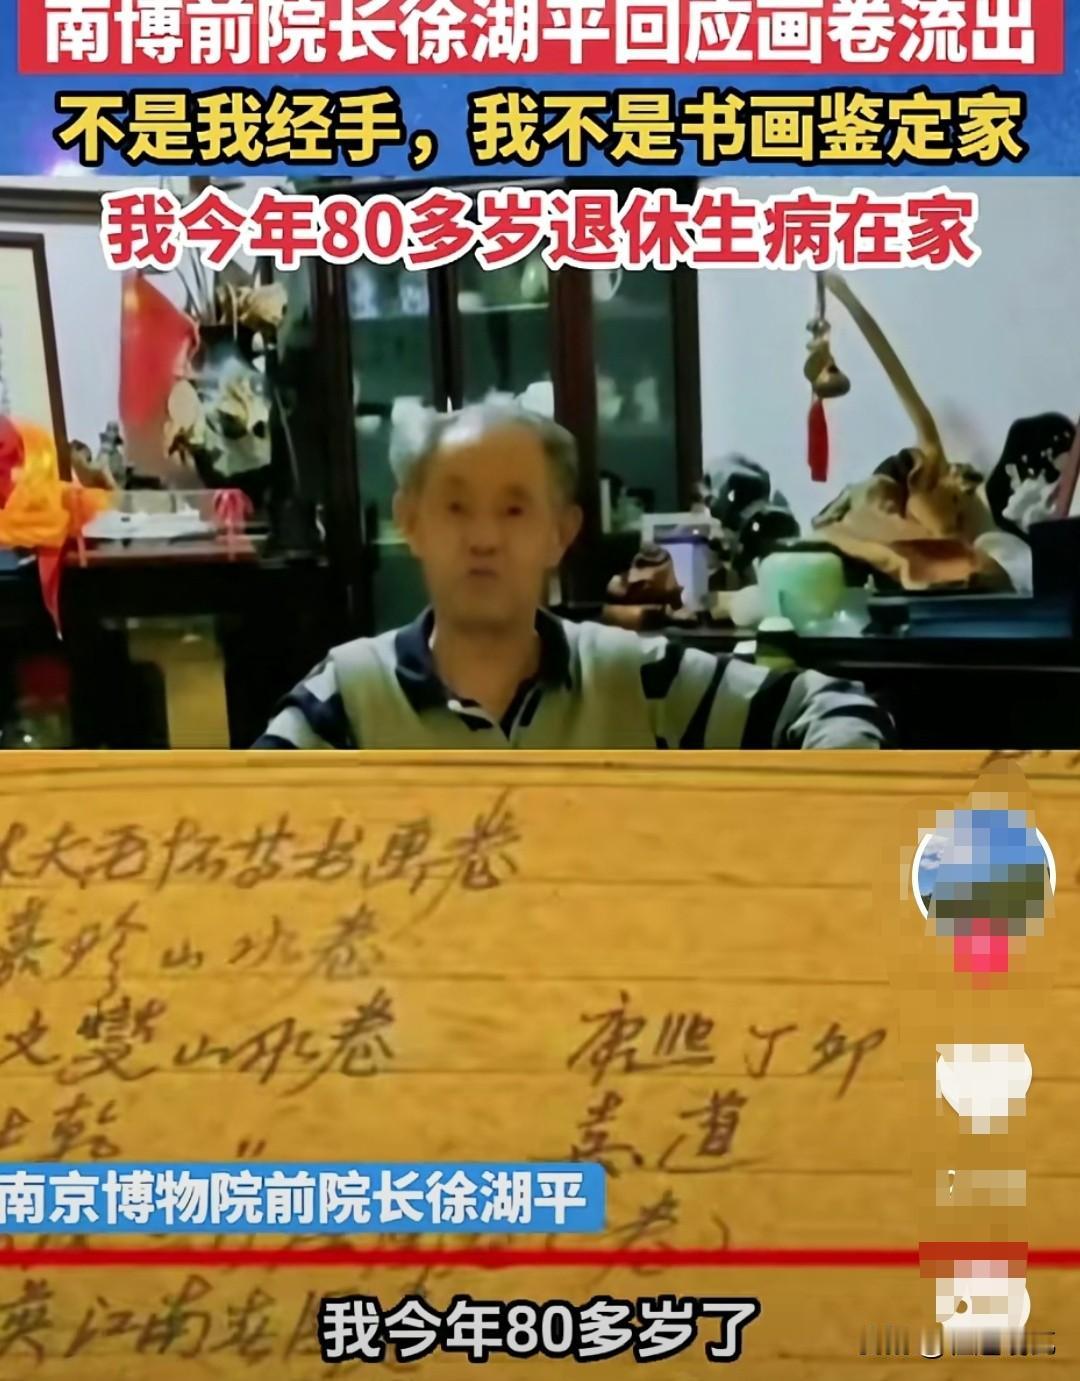 南博前院长徐湖平回应画卷流出
不是我经手，我不是书画鉴定家
我今年80多岁退休生病在家
夫吾怀苏书画卷
山水卷
文燮山水卷 康熙丁卯
乾 〃 道
南京博物院前院长徐湖平
卷）
江南春图
我今年80多岁了